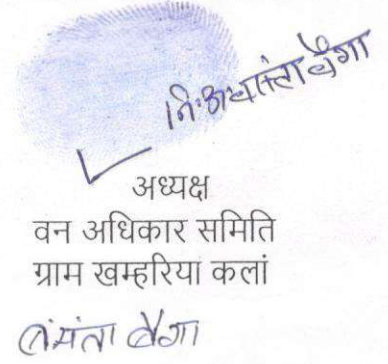 बैगा
अध्यक्ष
वन अधिकार समिति
ग्राम खम्हरिया कलां
बैगा